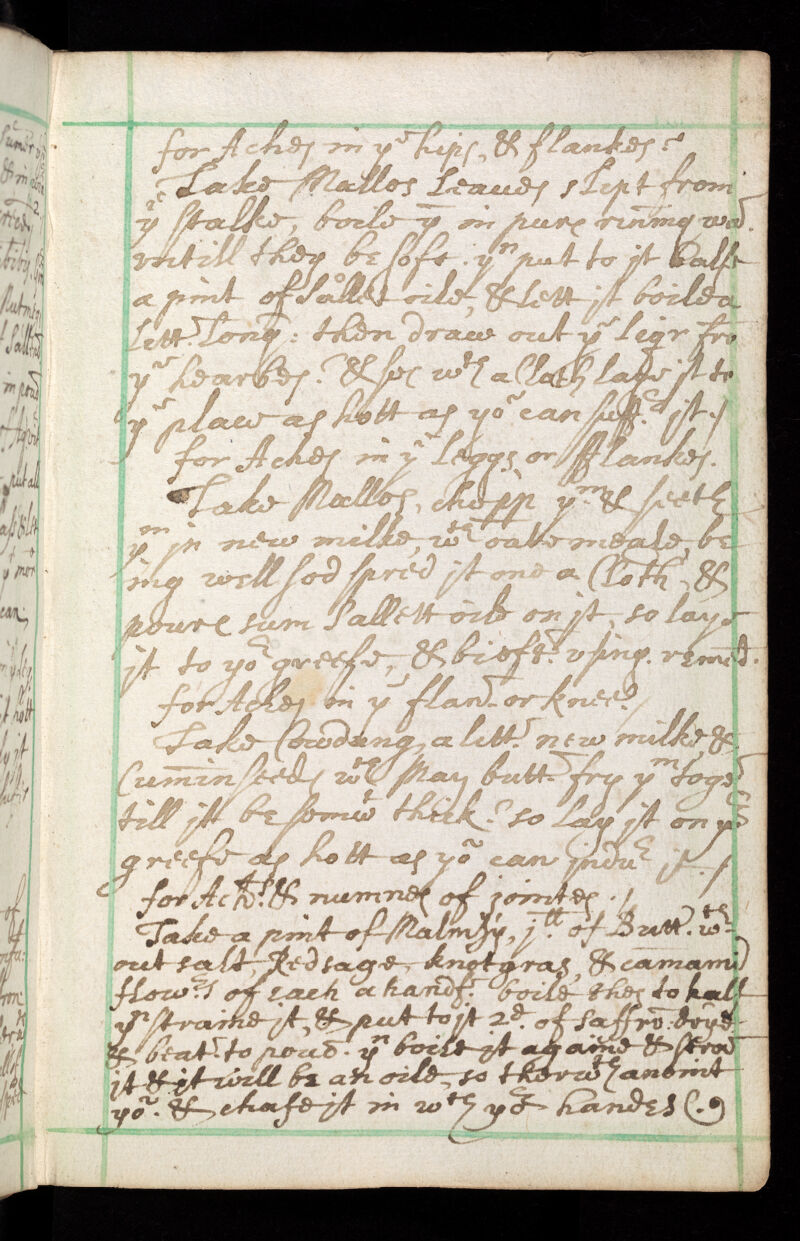 for Aches in ye hips, & flankes:
Take Mallos Leaues slept from
ye stalke, boile ym in pure rining wa.
vntill they be soft. yn put to jt halfe
a pint of sallet oile, & lett jt boile a
Lett. Long: then draw out ye liqr fro
ye hearbes. & soe wth a Cloth laye jt to
ye place as hott as yo can suff. jt./
for Aches in ye leggs or fflankes.
Take Mallos, chopp ym & seeth
ym in new milke, wth oatemeale, be
ing well sod spred jt one a Cloth, &
poure sum sallett oile on jt, so laye
jt to yor greefe, & b using remed.
for Aches in ye flan. or knee./
Take Cowdung, a lett. new milke, &
Cuminseeds wth May butt. fry ym toge
till jtt be somw thick. so lay jt on ye
greefe as hott as yo can indu jt./
for Ach & numnes of jointes./
Take a pint of Malmsy, j of Butt. wth
out salt, Redsage, knotgras, & camami
flowrs of each a handf. boile thes to half
yn straine jt, & put to jt 2d. of saffro. dryd
& beat. to poud. yn boile jt againe &
jt & jt will be an oile, so therwth anoint
yor. & chafe jt in wth yor handes